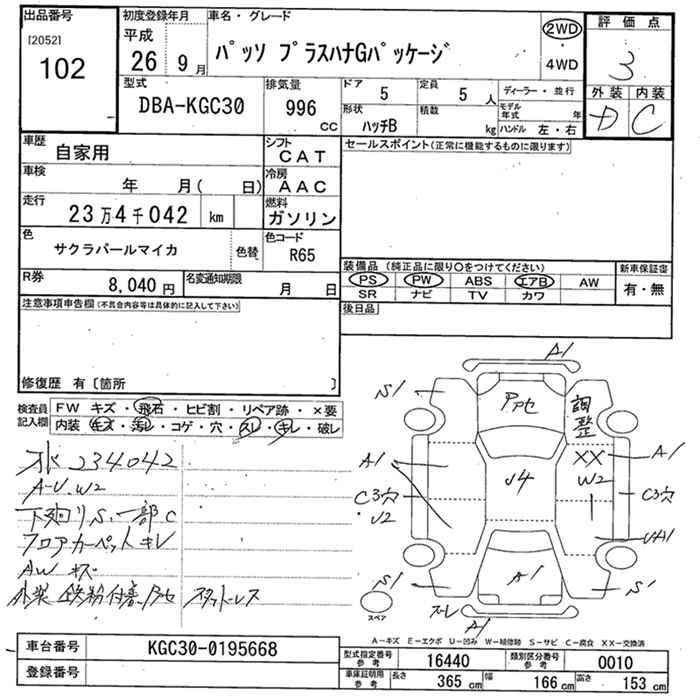 出品番号
[2052]
102
初度登録年月
平成
26 9月
車名・グレード
パッソ プラスハナGパッケージ
2WD
・
4WD
評価点
3
外装 内装
D C
型式
DBA-KGC30
排気量
996 cc
ドア
5
定員
5 人
形状
ハッチB
積載
kg
ディーラー・並行
モデル年式 年
ハンドル 左・右
車歴
自家用
シフト
CAT
車検
年 月( 日)
冷房
AAC
走行
23万4千042 km
燃料
ガソリン
色
サクラパールマイカ
色替
色コード
R65
R券
8,040円
名変通知期限
月 日
セールスポイント(正常に機能するものに限ります)
装備品(純正品に限り○をつけてください)
PS PW ABS エアB AW
SR ナビ TV カワ
新車保証書
有・無
後日品
注意事項申告欄(不具合内容等は具体的に記入して下さい)
修復歴 有〔箇所 〕
検査員記入欄
FW キズ・飛石・ヒビ割・リペア跡・×要
内装 キズ・汚れ・コゲ・穴・スレ・キレ・破レ
234042
A-U.W2
下廻りS.一部C
フロアカーペットキレ
AWキズ
外装 鉄粉付着
A1
S1
調整
A1
XX
A1
W2
C3穴
U4
C3穴
U2
UA1
S1
A1
S1
スレ
A1
スペア
A−キズ E−エクボ U−凹み W−補修跡 S−サビ C−腐食 XX−交換済
車台番号
KGC30-0195668
登録番号
型式指定番号
参考
16440
類別区分番号
参考
0010
車庫証明用
参考
長さ 365 cm
幅 166 cm
高さ 153 cm